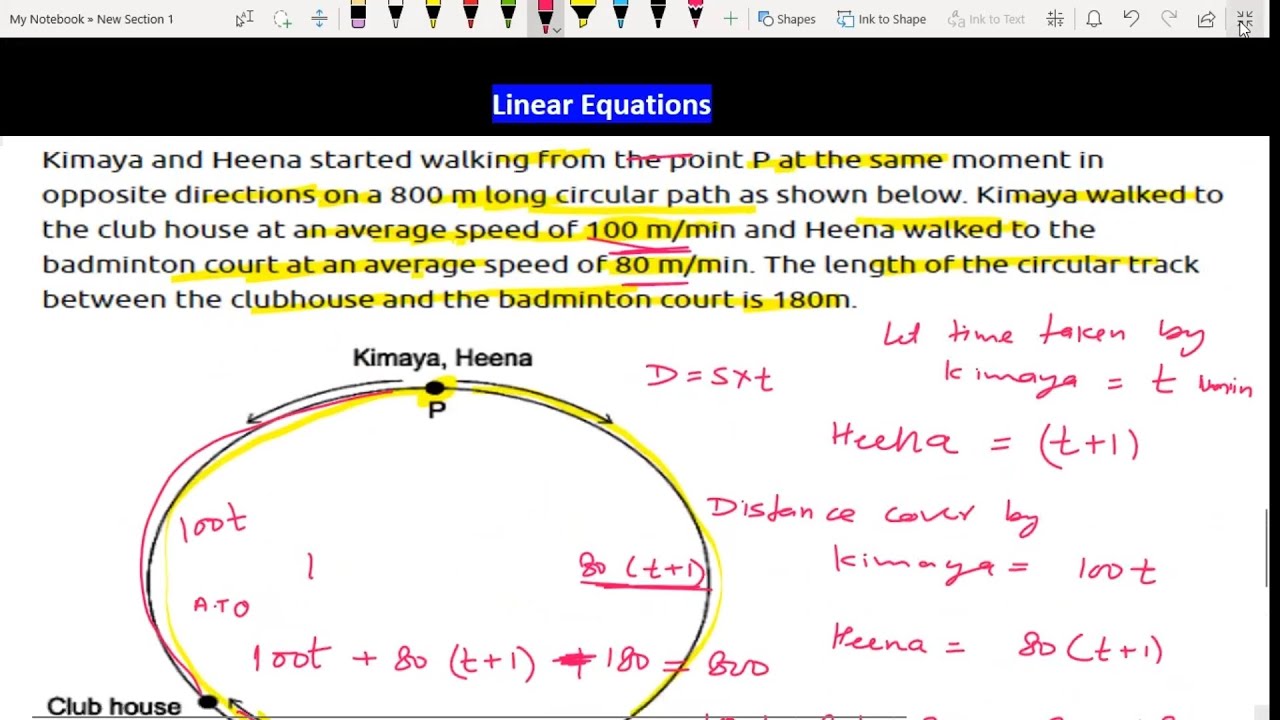 My Notebook » New Section 1
Shapes
Ink to Shape
Ink to Text
Linear Equations
Kimaya and Heena started walking from the point P at the same moment in
opposite directions on a 800 m long circular path as shown below. Kimaya walked to
the club house at an average speed of 100 m/min and Heena walked to the
badminton court at an average speed of 80 m/min. The length of the circular track
between the clubhouse and the badminton court is 180m.
Let time taken by
Kimaya = t
Kimaya, Heena
P
D = S x t
Heena = (t+1)
Distance cover by
100t
80 (t+1)
Kimaya = 100t
A.T.O
100t + 80 (t+1) + 180 = 800
Heena = 80(t+1)
Club house